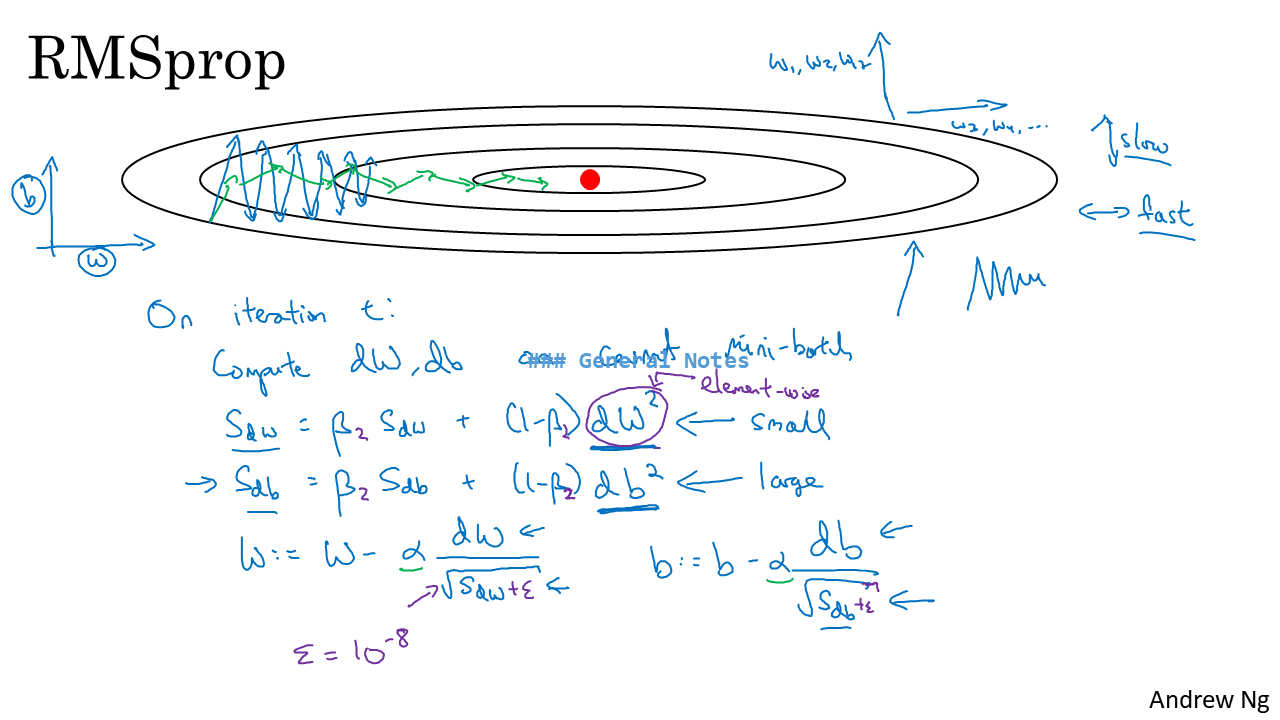 RMSprop
w₁, w₂, w₂
w₃, w₄, ...
slow
fast
b
w
On iteration t:
Compute dW, db on current mini-batch
### General Notes
element-wise
S_dw = β₂ S_dw + (1-β₂) dW² ← small
→ S_db = β₂ S_db + (1-β₂) db² ← large
W := W - α dW / √S_dw+ε ←
b := b - α db / √S_db+ε ←
ε = 10⁻⁸
Andrew Ng